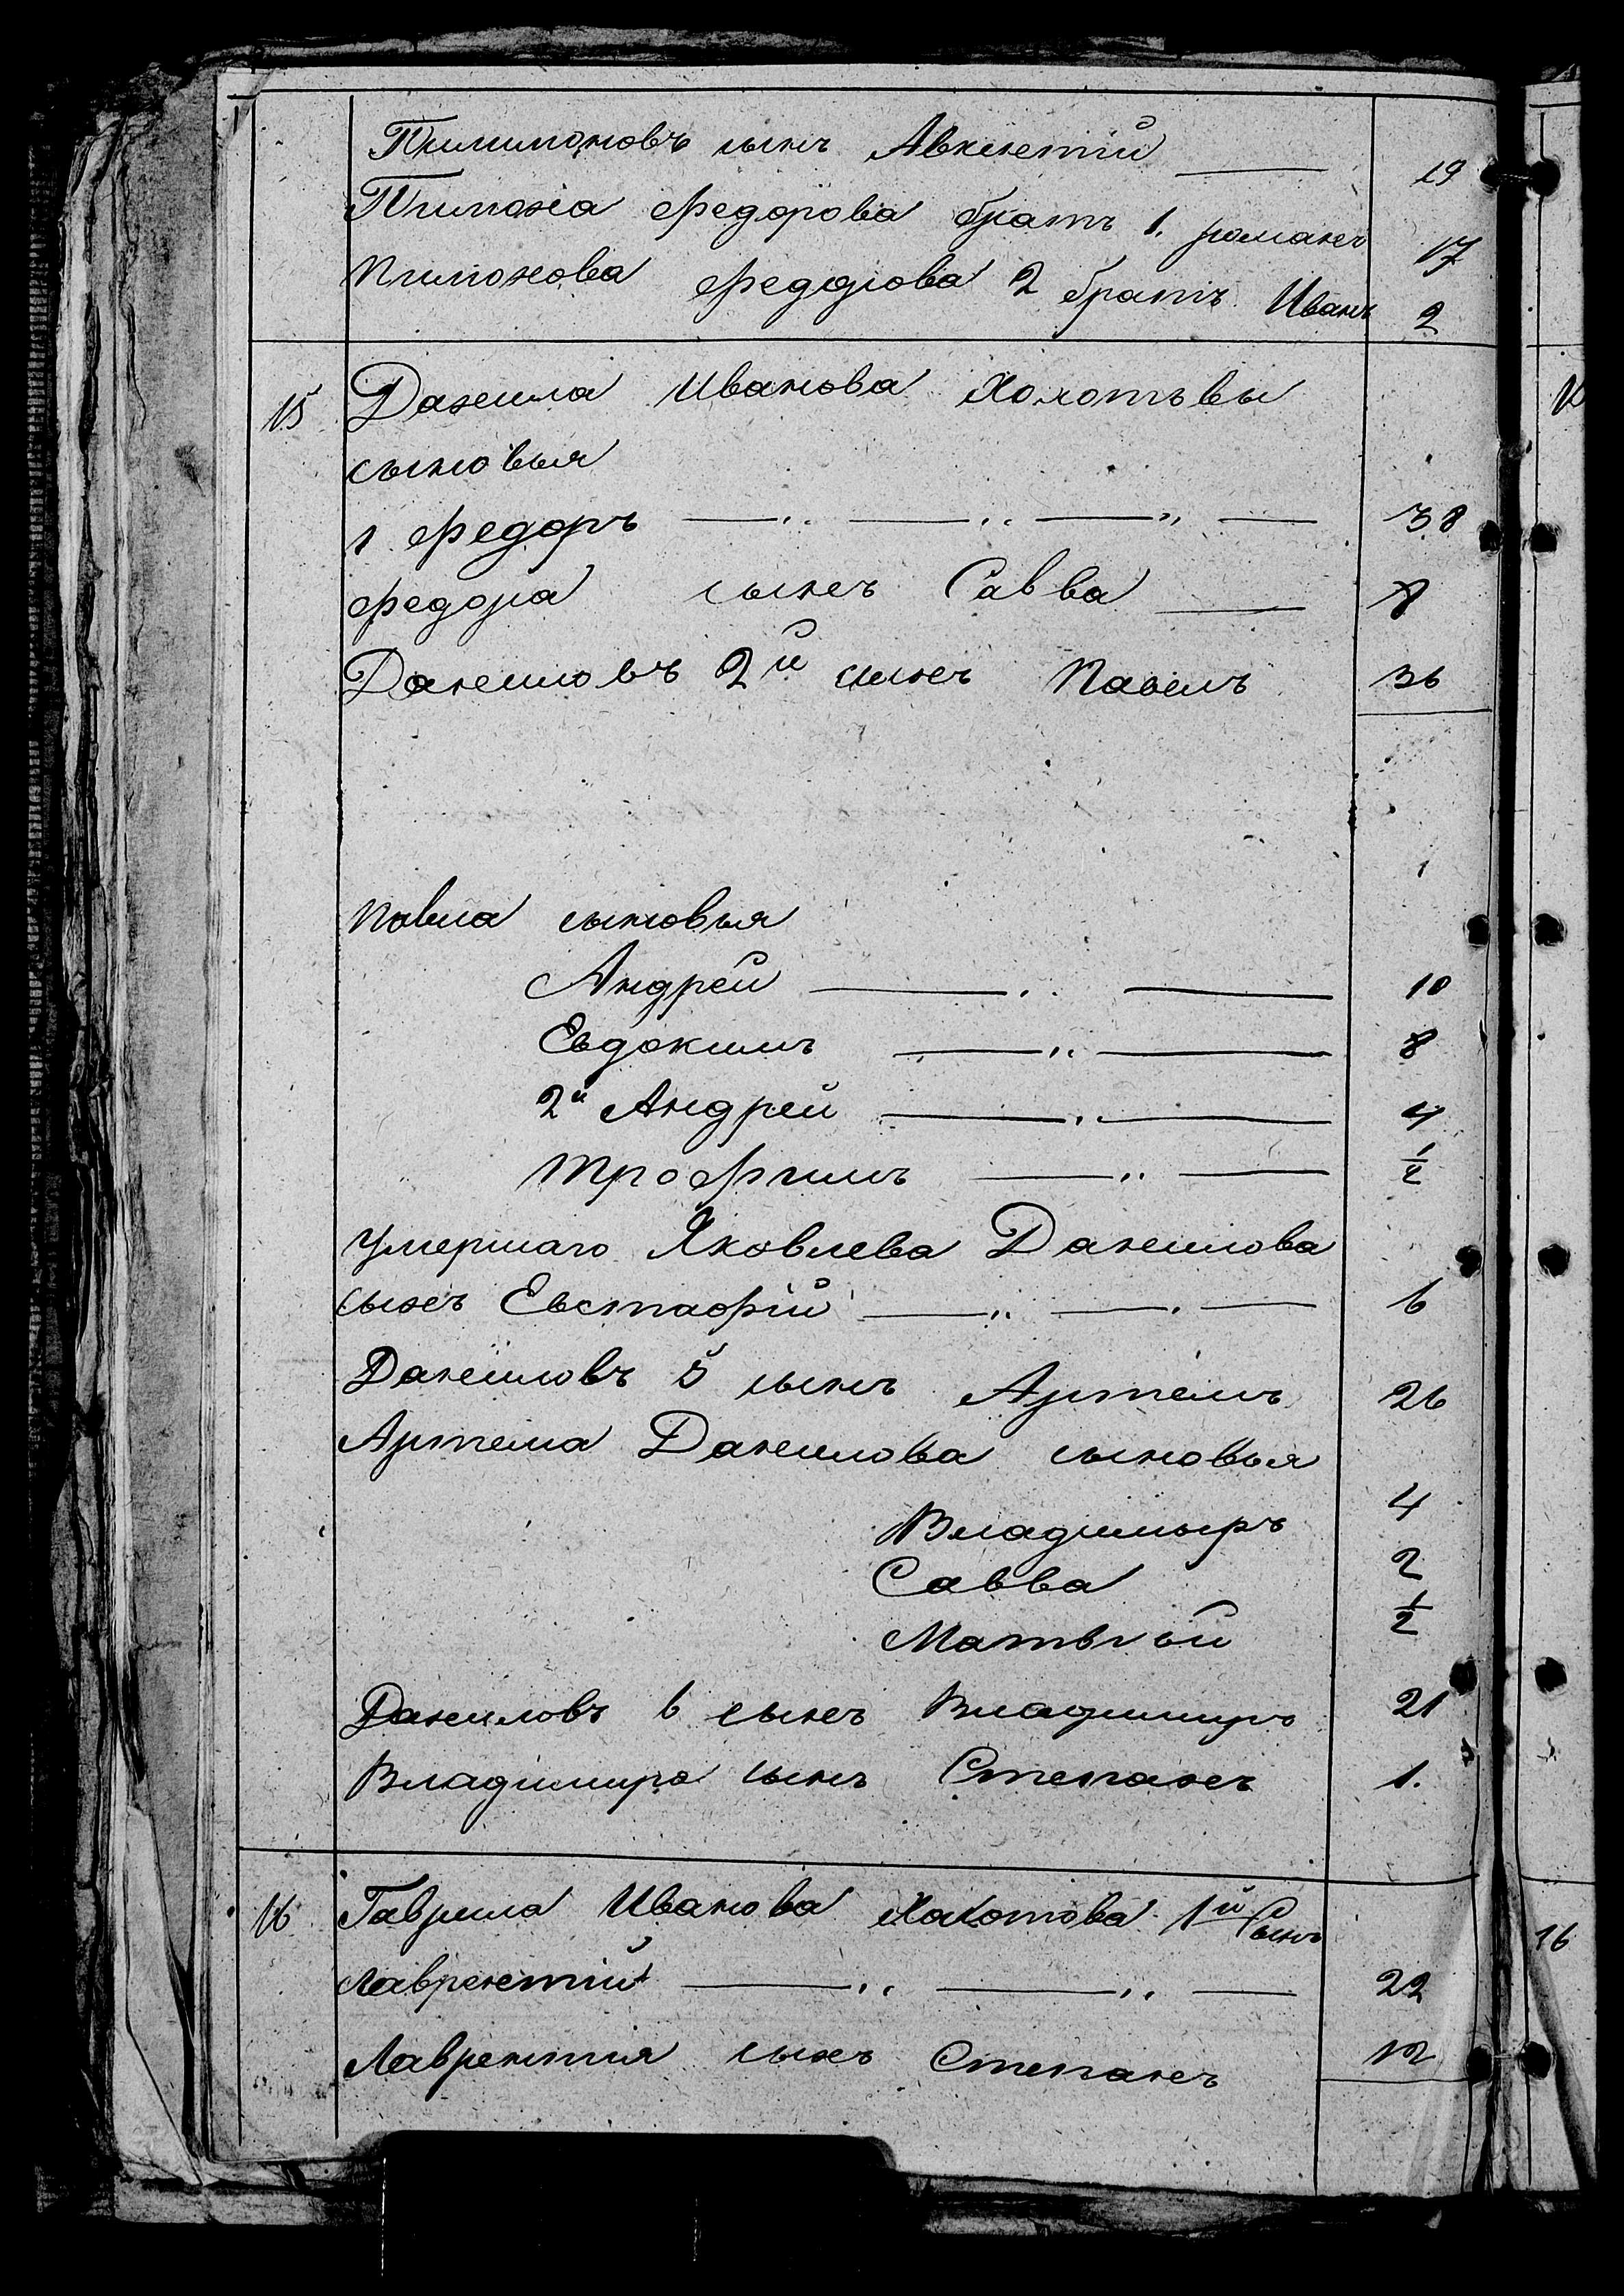 Пимимоновъ сынъ Авксентій 19
Пимона Федорова братъ 1. романъ 17
Пимонова Федорова 2 братъ Иванъ 2
15 Данила Иванова Холотъвы
сыновья
1 Федоръ 38
Федора сынъ Савва 8
Даниловъ 2й сынъ Павелъ 36
1
Павла сыновья
Андрей 10
Евдокимъ 8
2й Андрей 4
Трофимъ 1/2
Умершаго Яковлева Данилова
сынъ Евстафій 6
Даниловъ 5 сынъ Артемъ 26
Артема Данилова сыновья
Владимыръ 4
Савва 2
Матвѣй 1/2
Даниловъ 6 сынъ Владимиръ 21
Владимира сынъ Степанъ 1.
16 Гаврила Иванова Халотова 1й Сынъ
Лаврентій 22
Лаврентия сынъ Степанъ 12
16